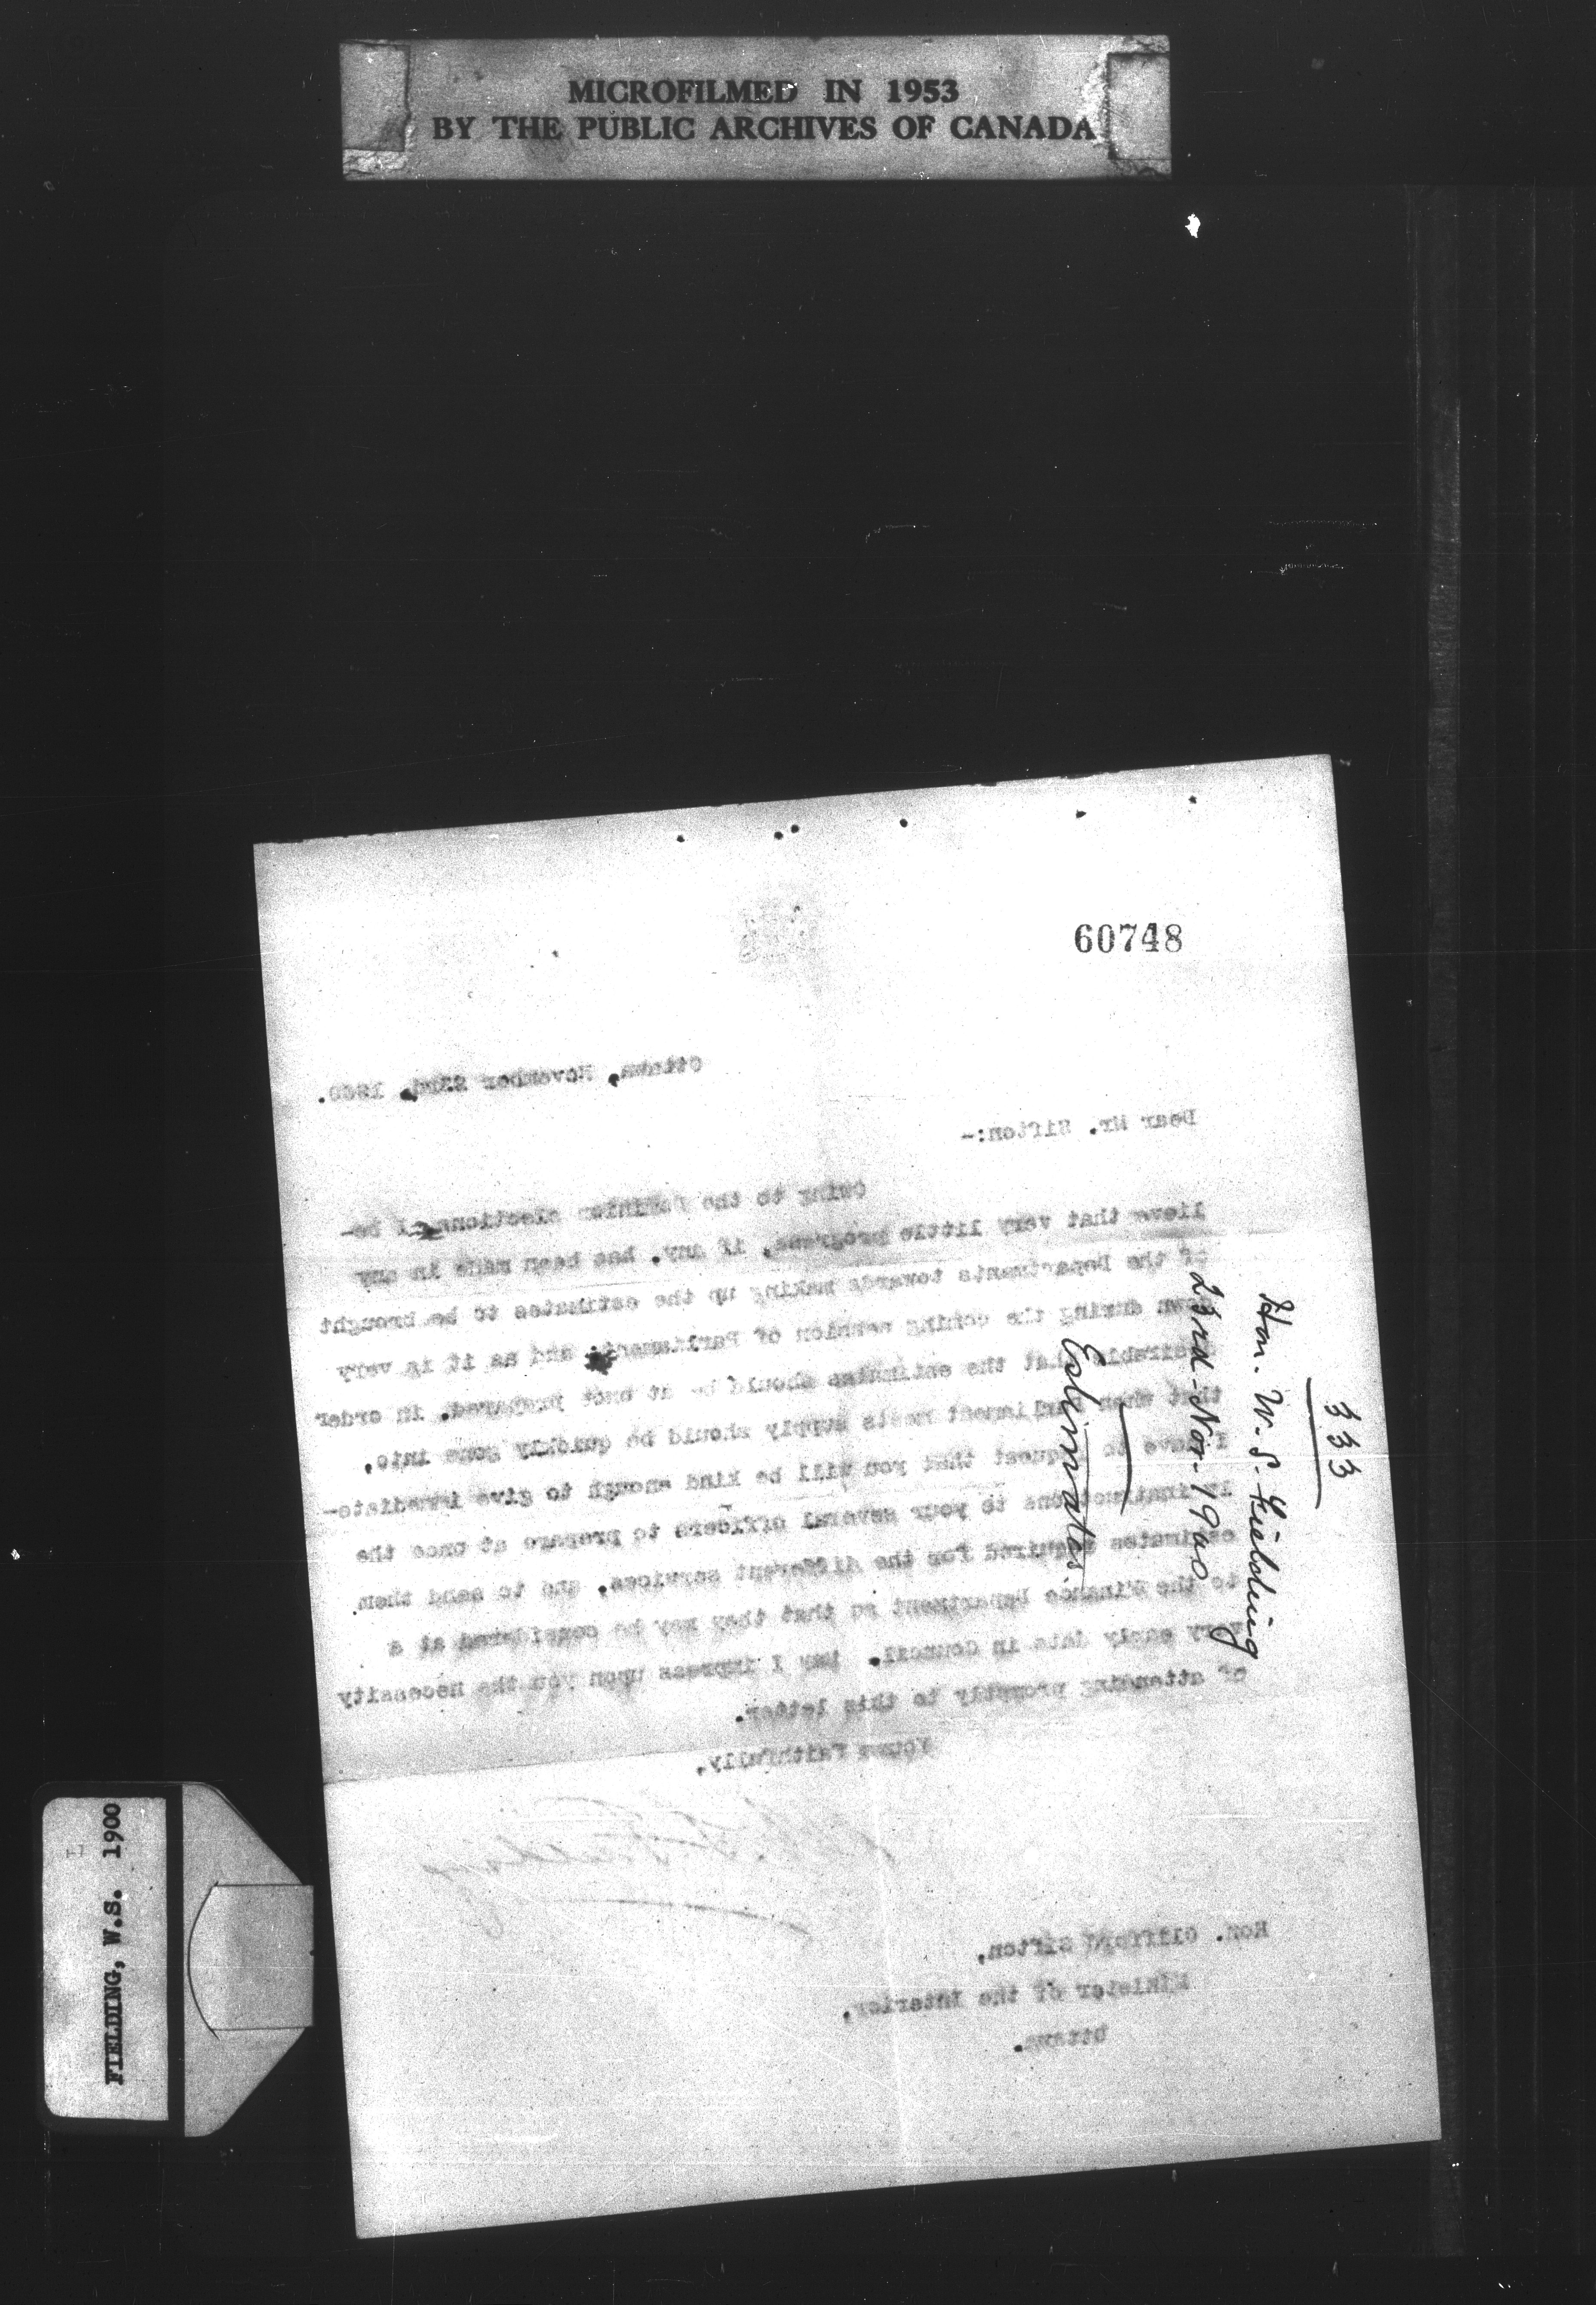 MICROFILMED IN 1953
BY THE PUBLIC ARCHIVES OF CANADA
60748
Ottawa, November 23rd, 1900.
Dear Mr. Sifton:-
Owing to the Dominion elections I be-
lieve that very little progress, if any, has been made in any
of the Departments towards making up the estimates to be brought
down during the coming session of Parliament, and as it is very
desirable that the estimates should be at once prepared, in order
that when Parliament meets supply should be quickly gone into,
I have to request that you will be kind enough to give immediate-
ly instructions to your several officers to prepare at once the
estimates required for the different services, and to send them
to the Finance Department so that they may be considered at a
very early date in Council. May I impress upon you the necessity
of attending promptly to this letter.
Yours faithfully,
W. S. Fielding
Hon. Clifford Sifton,
Minister of the Interior,
Ottawa.
333
Hon. W. S. Fielding
23rd-Nov-1900
Estimates.
FIELDING, W.S. 1900